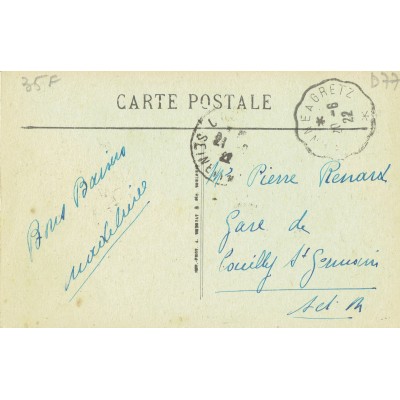 35F
D77
CARTE POSTALE
20-6
22
21
Bons Baisers
Madeleine
Mr Pierre Renard
Gare de
Couilly St Germain
Set M